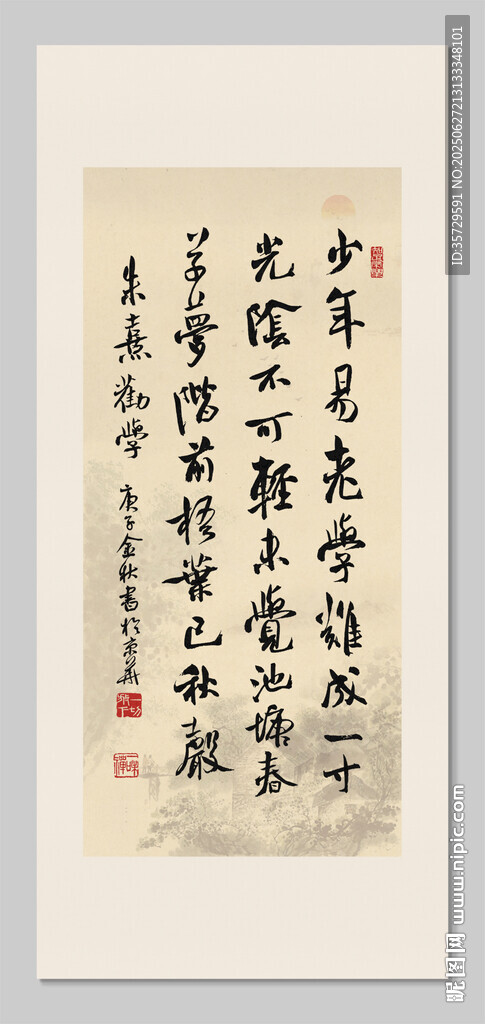 少年易老學難成一寸
光陰不可輕未覺池塘春
草夢階前梧葉已秋聲
朱熹勸學 庚子金秋書於京華
一切放下
ID:35729591 NO:20250627213133348101
昵图网 www.nipic.com